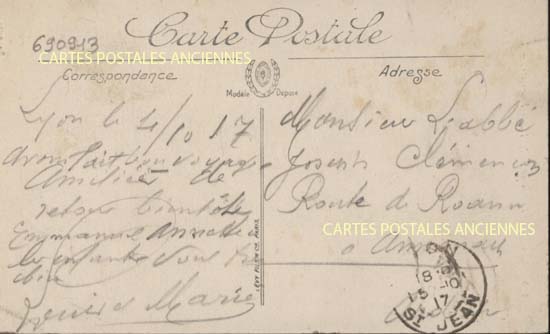 690913
Carte Postale
CARTES POSTALES ANCIENNES
Correspondance
Adresse
Modèle Déposé
Lyon le 4/10 17
Avons fait bon voyage
Amitiés de
retour bientôt
Emmanuel Annette
les enfants vous
Marie
LEVY FILS ET CIE, PARIS
Monsieur L'abbé
Joseph Clémençon
Route de Roanne
CARTES POSTALES ANCIENNES
a
LYON
18
5-10
17
ST JEAN